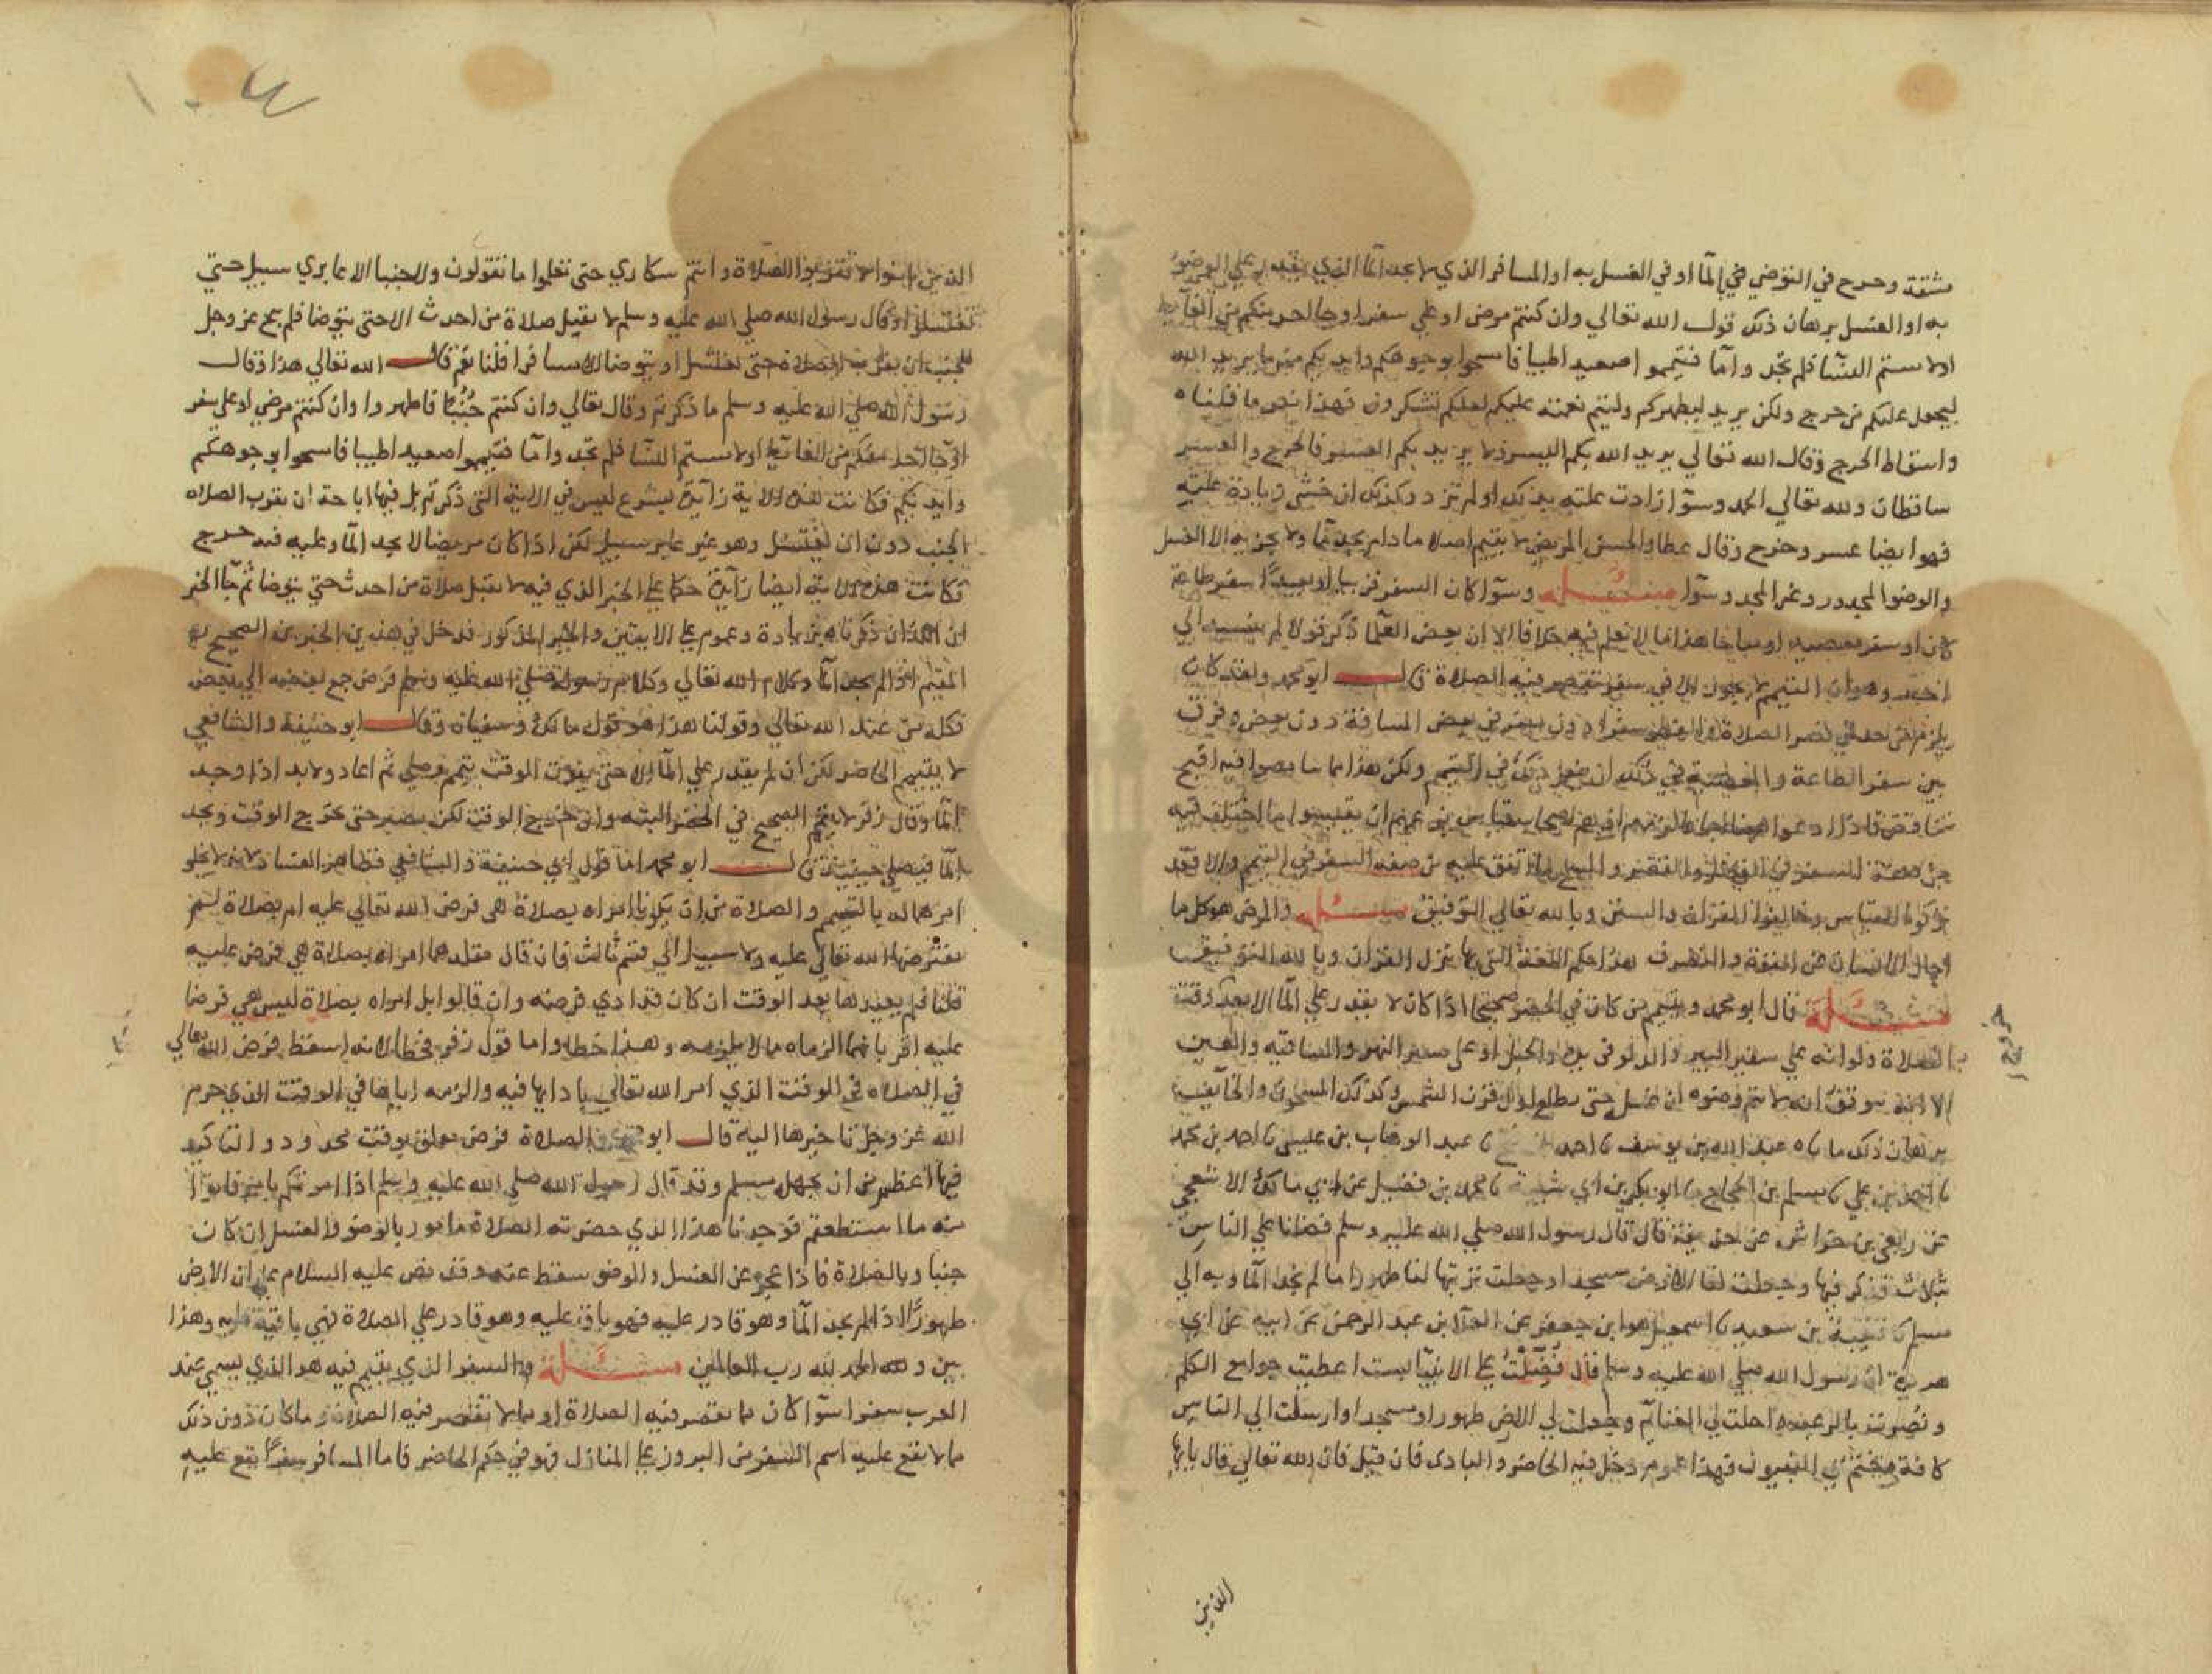 مشقة وحرج في التوضي في الما او في الغسل به او المسافر الذي لا يجد الما الذي يقدر علي الوضو
به او الغسل برهان ذلك قول الله تعالي وان كنتم مرضي او علي سفر او جا احد منكم من الغايط
اولا مستم النسا فلم تجدوا ما فتيمموا صعيدا طيبا فامسحوا بوجوهكم وايديكم منه ما يريد الله
ليجعل عليكم من حرج ولكن يريد ليطهركم وليتم نعمته عليكم لعلكم تشكرون فهذا نص ما قلناه
واسقاط الحرج وقال الله تعالي يريد الله بكم اليسر ولا يريد بكم العسر فالحرج والعسر
ساقطان ولله تعالي الحمد وسوا زادت علته بذلك او لم تزد وكذلك ان خشي زيادة علته
فهو ايضا عسر وحرج وقال عطا والحسن المريض لا يتيمم اصلا ما دام يجد ما ولا يجزيه الا الغسل
والوضو المجدور وغير المجدور سوا مسئلة وسوا كان السفر قريبا او بعيدا سفر طاعة
كان او سفر معصية او مباحا هذا ما لا نعلم فيه خلافا الا ان بعض العلما ذكر قولا لم ينسبه الي
احد وهو ان التيمم لا يجوز الا في سفر تقصر فيه الصلاة قال ابو محمد ولقد كان
يلزم من حد في قصر الصلاة والفطر سفرا دون سفر في بعض المسافة دون بعض وفرق
بين سفر الطاعة والمعصية في ذلك ان يفعل ذلك في التيمم ولكن هذا مما تناقضوا فيه اقبح
تناقض فاذا ادعوا ههنا اجماعا لزمهم
من صفة السفر في الفطر والقصر والمسح علي ما اتفق عليه من صفة السفر في التيمم والا فقد
تركوا القياس وخالفوا القران والسنن وبالله تعالي التوفيق مسئلة والمرض هو كل ما
احال الانسان عن القوة والتصرف هذا حكم اللغة التي بها نزل القران وبالله التوفيق
مسئلة قال ابو محمد ويتيمم من كان في الحضر صحيحا اذا كان لا يقدر علي الما الا بعد وقت
خروج
الصلاة ولو انه علي سفير البير والدلو في يده والحبل او علي سفير النهر والساقية والعين
الا انه يوقن انه لا يتم وضوه ان غسل حتي يطلع اول قرن الشمس وكذلك المسجون والخايف
برهان ذلك ما ناه عبد الله بن يوسف نا احمد بن فتح نا عبد الوهاب بن عيسي نا احمد بن محمد
نا احمد بن علي نا مسلم بن الحجاج نا ابو بكر بن ابي شيبة نا محمد بن فضيل عن ابي مالك الاشجعي
عن ربعي بن حراش عن حذيفة قال قال رسول الله صلي الله عليه وسلم فضلنا علي الناس
بثلاث فذكر فيها وجعلت لنا الارض مسجدا وجعلت تربتها لنا طهورا ما لم نجد الما وبه الي
مسلم نا قتيبة بن سعيد نا اسمعيل هو ابن جعفر عن العلا بن عبد الرحمن عن ابيه عن ابي
هريرة ان رسول الله صلي الله عليه وسلم قال فضلت علي الانبيا بست اعطيت جوامع الكلم
ونصرت بالرعب واحلت لي الغنايم وجعلت لي الارض طهورا ومسجدا وارسلت الي الناس
كافة وختم بي النبيون فهذا عموم دخل فيه الحاضر والبادي فان قيل فان الله تعالي قال يا ايها
الذين
الذين امنوا لا تقربوا الصلاة وانتم سكاري حتي تعلموا ما تقولون ولا جنبا الا عابري سبيل حتي
تغتسلوا وقال رسول الله صلي الله عليه وسلم لا يقبل صلاة من احدث الا حتي يتوضا فلم يبح عز وجل
للجنب ان يقرب الصلاة حتي يغتسل او يتوضا الا مسافرا قلنا نعم قال الله تعالي هذا وقال
رسول الله صلي الله عليه وسلم ما ذكرتم وقال تعالي وان كنتم جنبا فاطهروا وان كنتم مرضي او علي سفر
او جا احد منكم من الغايط اولا مستم النسا فلم تجدوا ما فتيمموا صعيدا طيبا فامسحوا بوجوهكم
وايديكم فكانت هذه الاية زايدة بشرع ليس في الاية التي ذكرتم بل فيها اباحة ان يقرب الصلاه
الجنب دون ان يغتسل وهو غير عابر سبيل لكن اذا كان مريضا لا يجد الما وعليه فيه حرج
فكانت هذه الاية ايضا زايدة حكما علي الخبر الذي فيه لا تقبل صلاة من احدث حتي يتوضا ثم جا الخبر
ان اللذان ذكرناهما بزيادة وعموم علي الايتين والخبر المذكور فدخل في هذين الخبرين الصحيح
المقيم اذا لم يجد الما وكلام الله تعالي وكلام رسوله صلي الله عليه وسلم فرض جمع بعضه الي بعض
فكله من عند الله تعالي وقولنا هذا هو قول مالك وسفيان وقال ابو حنيفة والشافعي
لا يتيمم الحاضر لكن ان لم يقدر علي الما الا حتي يفوت الوقت يتيمم وصلي ثم اعاد ولا بد اذا وجد
الما وقال زفر لا يتيمم الصحيح في الحضر البتة وان خرج الوقت لكن يصبر حتي يخرج الوقت ويجد
الما فيصلي حينيذ قال ابو محمد اما قول ابي حنيفة والشافعي فظاهر الفساد لانه لا يخلو
امرهما له بالتيمم والصلاة من ان يكونا امراه بصلاة هي فرض الله تعالي عليه ام بصلاة لم
يفترضها الله تعالي عليه ولا سبيل الي قسم ثالث فان قال مقلدهما امراه بصلاة هي فرض عليه
قلنا فلم يعيدها بعد الوقت ان كان قد ادي فرضه وان قالوا بل امراه بصلاة ليس هي فرضا
عليه اقر بانهما الزماه ما لا يلزمه وهذا خطا واما قول زفر فخطا لانه اسقط فرض الله تعالي
في الصلاه في الوقت الذي امر الله تعالي بادايها فيه والزمه اياها في الوقت الذي حرم
الله عز وجل تاخيرها اليه قال ابو محمد والصلاة فرض معلق بوقت محدود والتاكيد
فيها اعظم من ان يجهله مسلم وقد قال رسول الله صلي الله عليه وسلم اذا امرتكم بامر فاتوا
منه ما استطعتم فوجدنا هذا الذي حضرته الصلاة مامور بالوضو والغسل ان كان
جنبا وبالصلاة فاذا عجز عن الغسل والوضو سقط عنه وقد نص عليه السلام علي ان الارض
طهور اذا لم يجد الما وهو قادر عليه فهو باق عليه وهو قادر علي الصلاة فهي باقية عليه وهذا
بين والحمد لله رب العالمين مسئلة والسفر الذي يتيمم فيه هو الذي يسمي عند
العرب سفرا سوا كان مما تقصر فيه الصلاة او مما لا تقصر فيه الصلاة وما كان دون ذلك
مما لا يقع عليه اسم السفر من البروز علي المنازل فهو في حكم الحاضر فاما المسافر سفرا يقع عليه